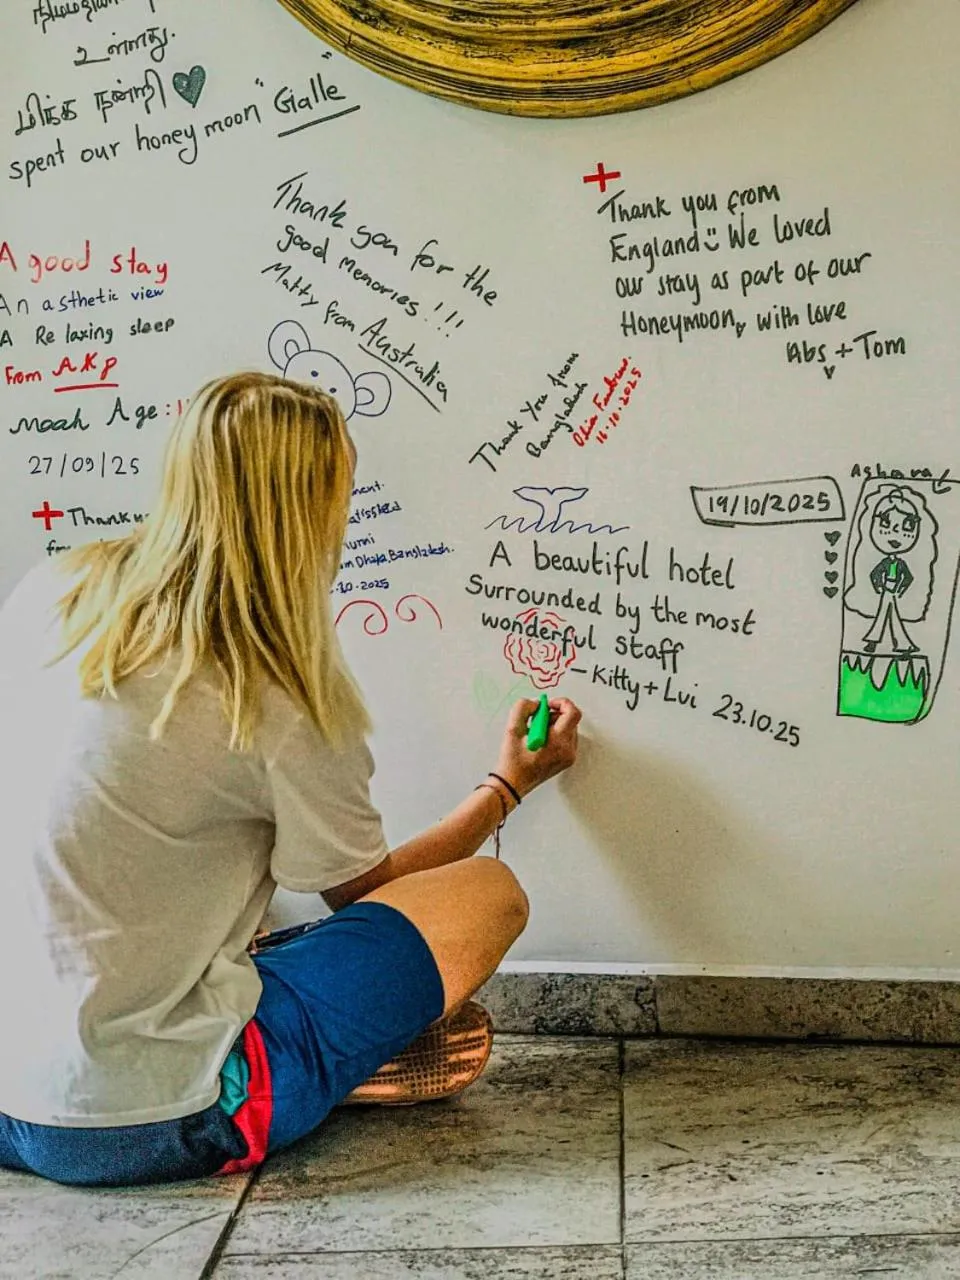 உள்ளது.
மிக்க நன்றி
spent our honey moon "Gialle"
A good stay
An asthetic view
A Relaxing sleep
From AKP
Moah Age:
27/09/25
Thank
Thank you for the
good memories!!!
Matty from Australia
Thank you from
England We loved
our stay as part of our
Honeymoon, with love
Abs + Tom
Thank You from
Bangladesh
16.10.2025
Dhaka, Bangladesh.
.10.2025
A beautiful hotel
Surrounded by the most
wonderful staff
- Kitty + Lui 23.10.25
19/10/2025